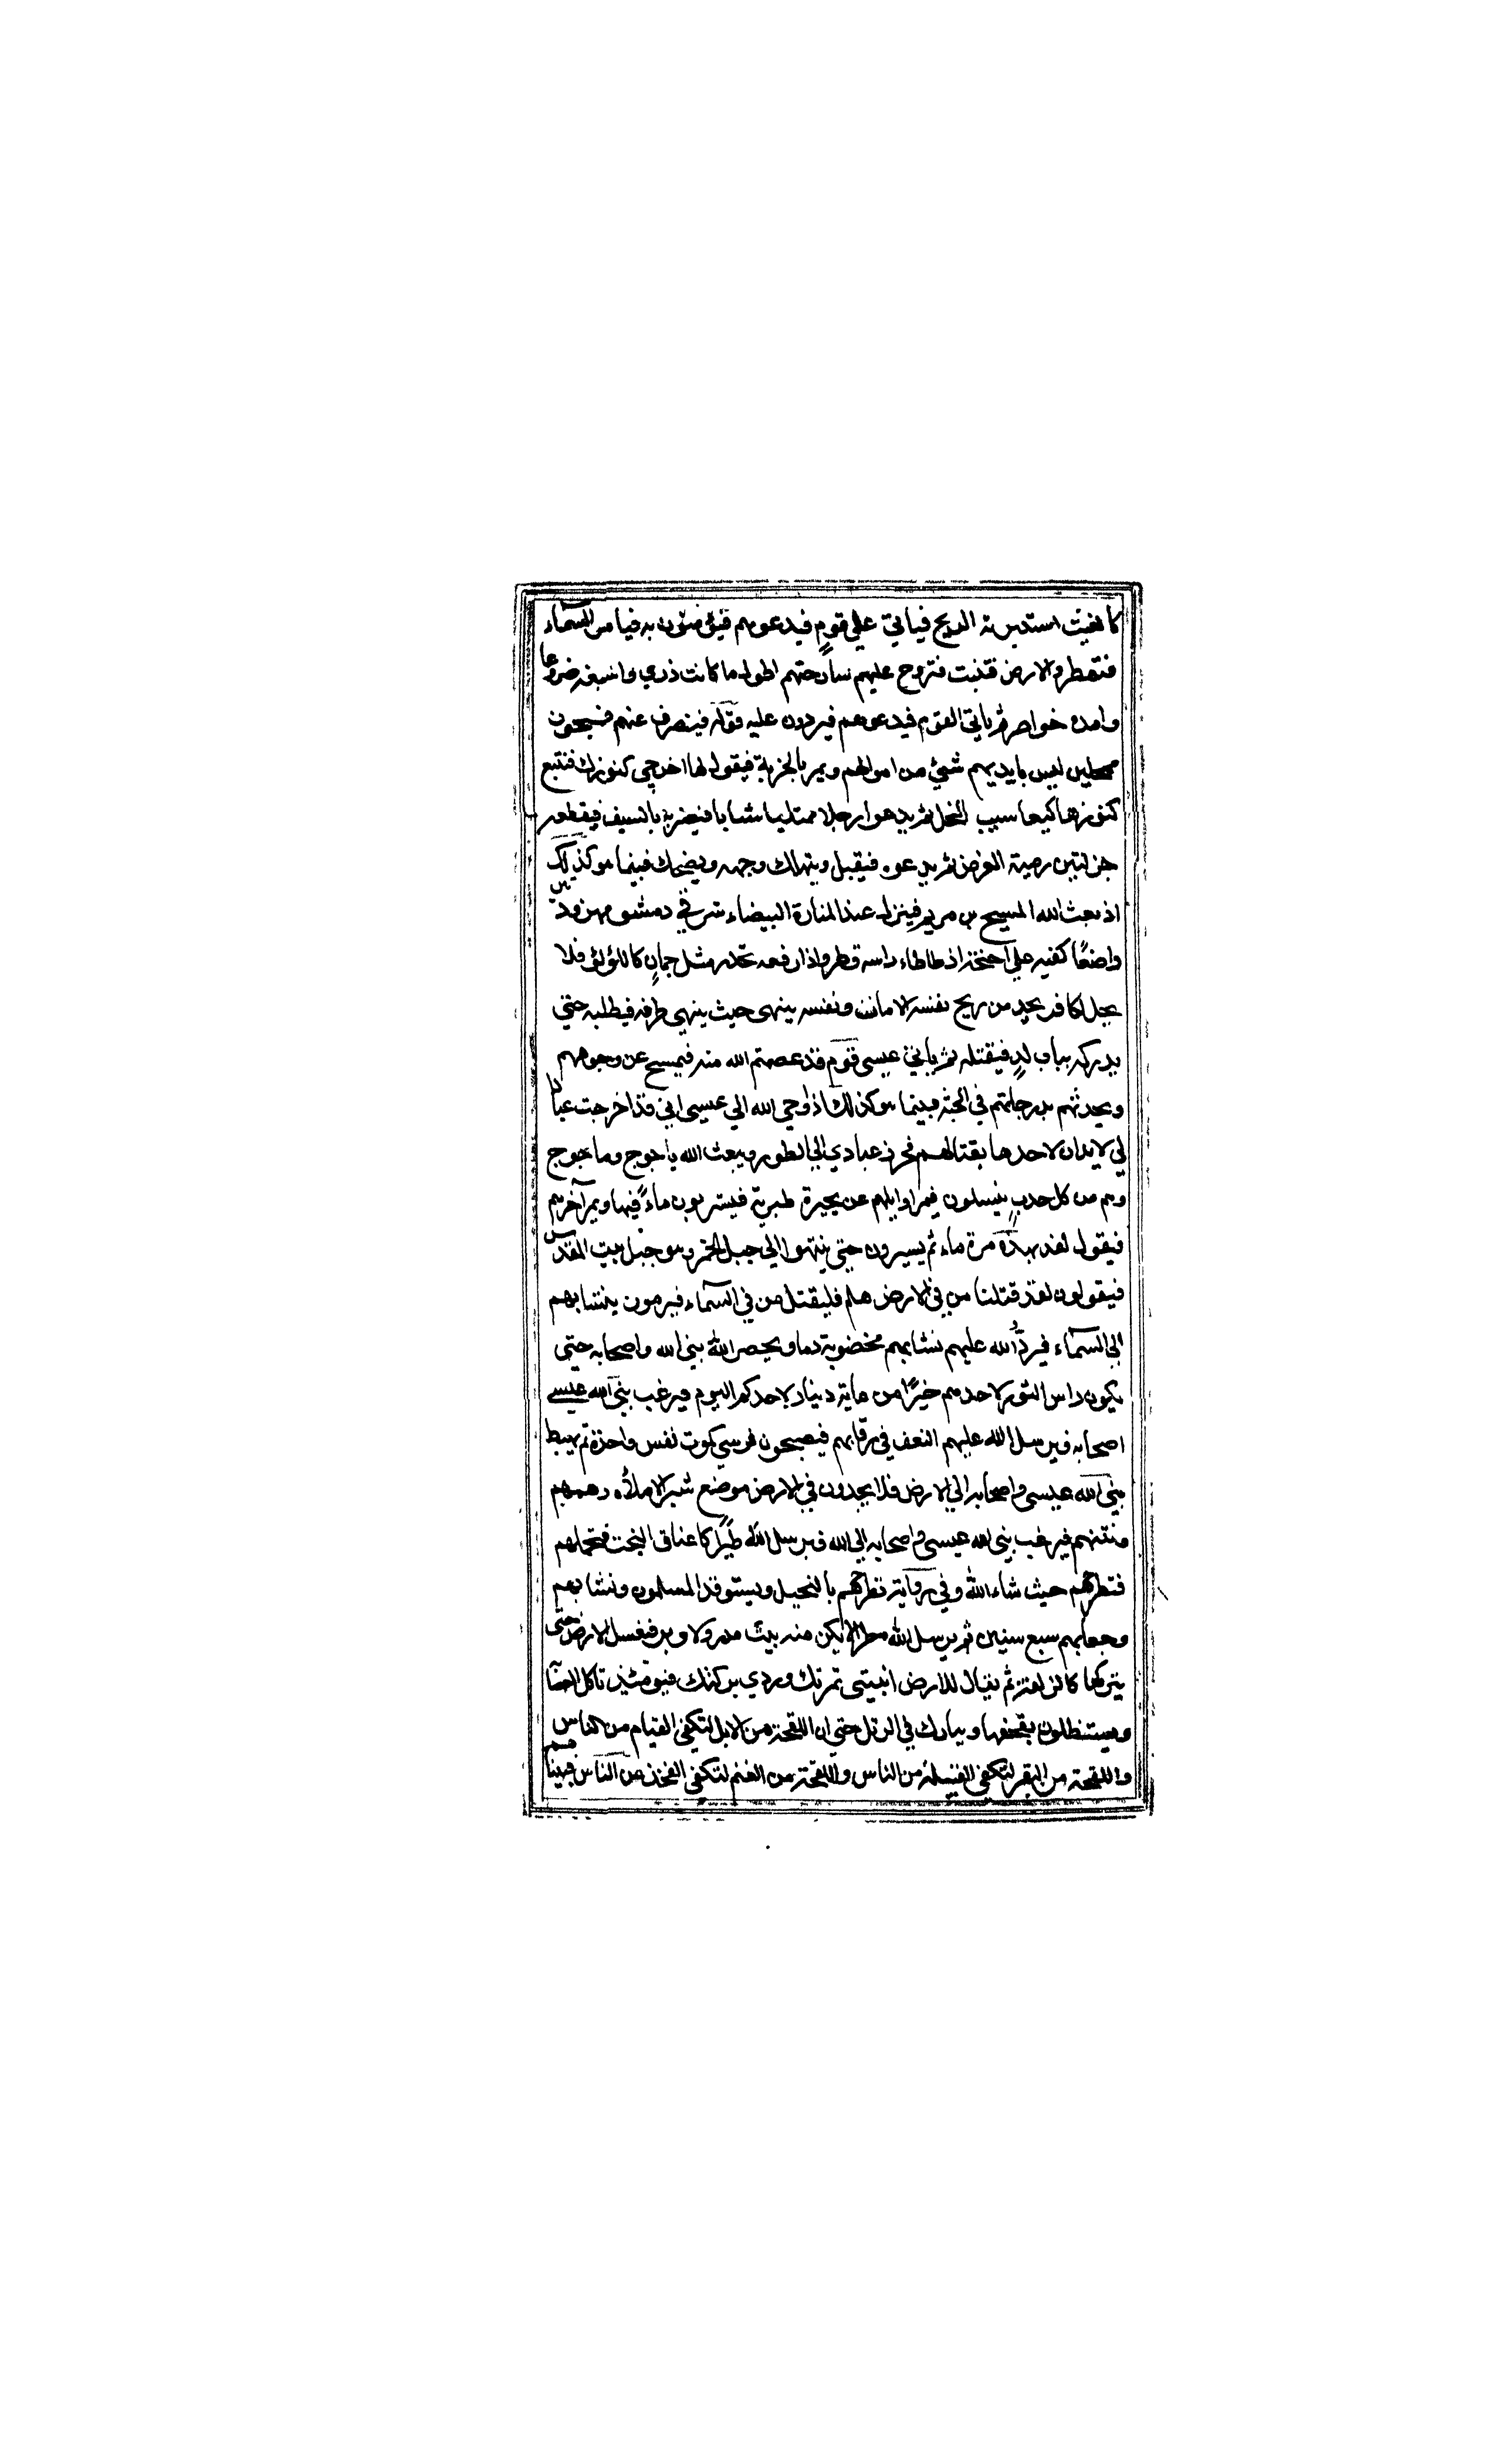 كالغيث استدبرته الريح فياتي علي قومٍ فيدعوهم فيؤمنون به فيامر السماء
فتمطر والارض فتنبت فتروح عليهم سارحتهم اطول ما كانت ذري واسبغه ضروعا
وامده خواصر ثم ياتي القوم فيدعوهم فيردون عليه قوله فينصرف عنهم فيصبحون
ممحلين ليس بايديهم شيئ من اموالهم ويمر بالخربة فيقول لها اخرجي كنوزك فتتبع
كنوزها كيعاسيب النخل ثم يدعوا رجلا ممتليا شبابا فيضربه بالسيف فيقطعه
جزلتين رمية الغرض ثم يدعوه فيقبل ويتهلل وجهه ويضحك فبينما هو كذلك
اذ بعث الله المسيح بن مريم فينزل عند المنارة البيضاء شرقي دمشق بين مهزودتين
واضعًا كفيه علي اجنحة اذ طاطاء راسه قطر واذا رفعه تحدر مثل جمانٍ كاللؤلؤ فلا
يحل لكافر يجد من ريح نفسه الا مات ونفسه ينتهى حيث ينتهي طرفه فيطلبه حتي
يدركه بباب لدٍ فيقتله ثم ياتي عيسى قوم قد عصمهم الله منه فيمسح عن وجوههم
ويحدثهم بدرجاتهم في الجنة فبينما هو كذلك اذ اوحي الله الي عيسى اني قد اخرجت عبادا
لي لا يدان لاحد ها بقتالهم فحرز عبادي الي الطور ويبعث الله ياجوج وماجوج
وهم من كل حدبٍ ينسلون فيمر اوايلهم عن بحيرة طبرية فيشربون ماءً فيها ويمر آخرهم
فيقول لقد بهذه مرة ماء ثم يسيرون حتى ينتهوا الي جبل الخمر وهو جبل بيت المقدس
فيقولون لقد قتلنا من في الارض هلم فليقتل من في السماء فيرمون بنشابهم
الي السماء فيردُّ الله عليهم نشابهم مخضوبة دما ويحصر الله نبي الله واصحابه حتى
يكون راس الثور لاحدهم خيرًا من ماية دينار لاحدكم اليوم فيرغب نبي الله عيسى
اصحابه فيرسل الله عليهم النغف في رقابهم فيصبحون فرسي كموت نفس واحدة ثم يهبط
نبي الله عيسى واصحابه الي الارض فلا يجدون في الارض موضع شبر الا ملأه زهمهم
ونتنهم فيرغب نبي الله عيسى واصحابه الي الله فيرسل الله طيرًا كاعناق البخت فتحملهم
فتطرحهم حيث شاء الله وفي رواية تطرحهم بالنهبل ويستوقد المسلمون ونشابهم
وجعابهم سبع سنين ثم يرسل الله مطرا لا يكن منه بيت مدر ولا وبر فيغسل الارض حتى
يتركها كالزلفة ثم يقال للارض انبتى ثمرتك وردي بركتك فيومئذ تاكل العصا
ويستظلون بقحفها ويبارك في الرسل حتى ان اللقحة من الابل لتكفي الفيام من الناس
واللقحة من البقر لتكفي القبيلة من الناس واللقحة من الغنم لتكفي الفخذ من الناس فبينما هم